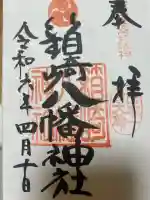 奉拝
箱崎八幡神社
令和六年四月十日